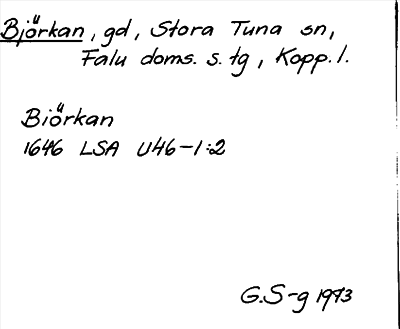 Björkan, gd, Stora Tuna sn,
Falu doms. s. tg, Kopp. l.
Biörkan
1646 LSA U46-1:2
G.S-g 1973